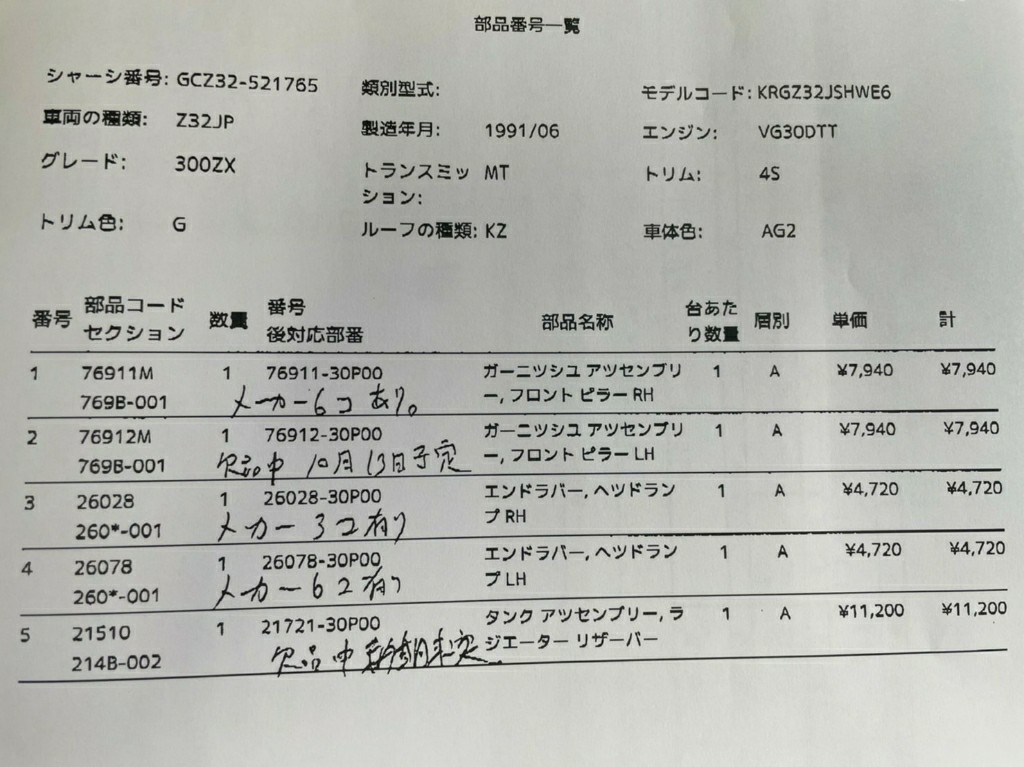 部品番号一覧
シャーシ番号: GCZ32-521765 類別型式: モデルコード: KRGZ32JSHWE6
車両の種類: Z32JP 製造年月: 1991/06 エンジン: VG30DTT
グレード: 300ZX トランスミッション: MT トリム: 4S
トリム色: G ルーフの種類: KZ 車体色: AG2
番号 部品コード 数量 番号 部品名称 台あたり数量 層別 単価 計
セクション 後対応部番
1 76911M 1 76911-30P00 ガーニツシユ アツセンブリ 1 A ¥7,940 ¥7,940
769B-001 メーカー6コあり。 ー, フロント ピラー RH
2 76912M 1 76912-30P00 ガーニツシユ アツセンブリ 1 A ¥7,940 ¥7,940
769B-001 欠品中 10月13日予定 ー, フロント ピラー LH
3 26028 1 26028-30P00 エンドラバー, ヘツドラン 1 A ¥4,720 ¥4,720
260*-001 メーカー3コ有り プ RH
4 26078 1 26078-30P00 エンドラバー, ヘツドラン 1 A ¥4,720 ¥4,720
260*-001 メーカー6コ有り プ LH
5 21510 1 21721-30P00 タンク アツセンブリー, ラ 1 A ¥11,200 ¥11,200
214B-002 欠品中 ジエーター リザーバー